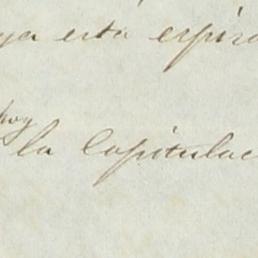 ya está espira
hoy
la Capitulac